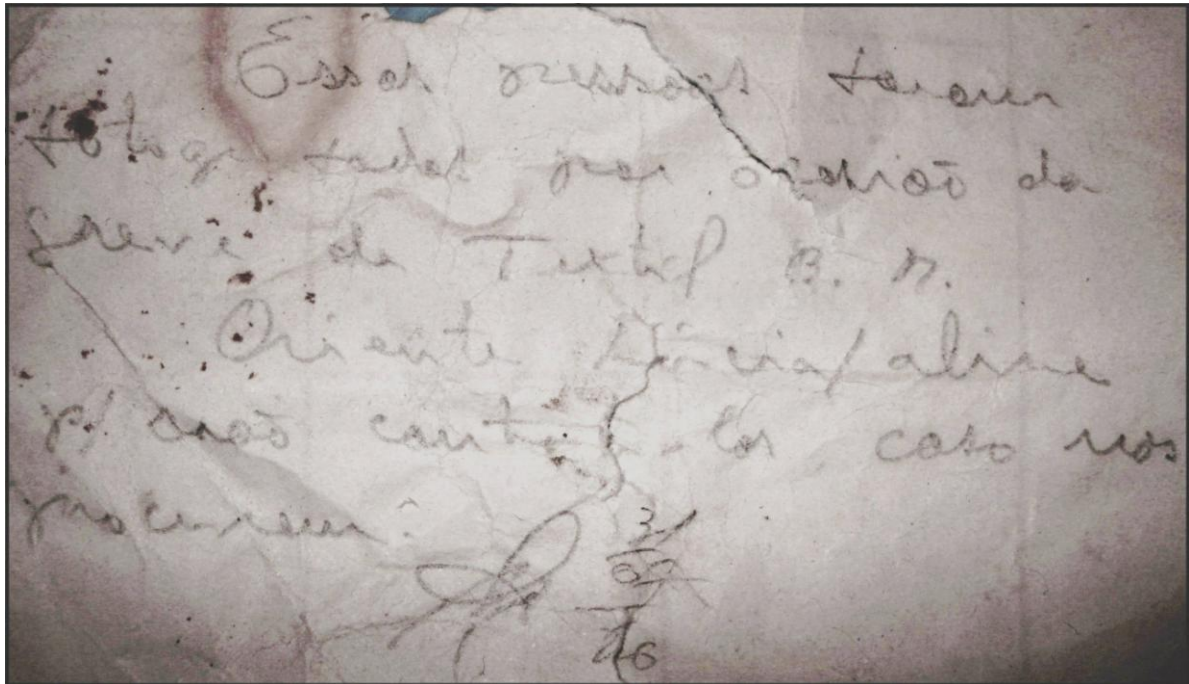 Essas pessoas foram
fotogr fadas por ocasião da
greve da Textil B. M.
Oriente Márcia/aline
p/ não contratá-las caso nos
procurem.
31
07